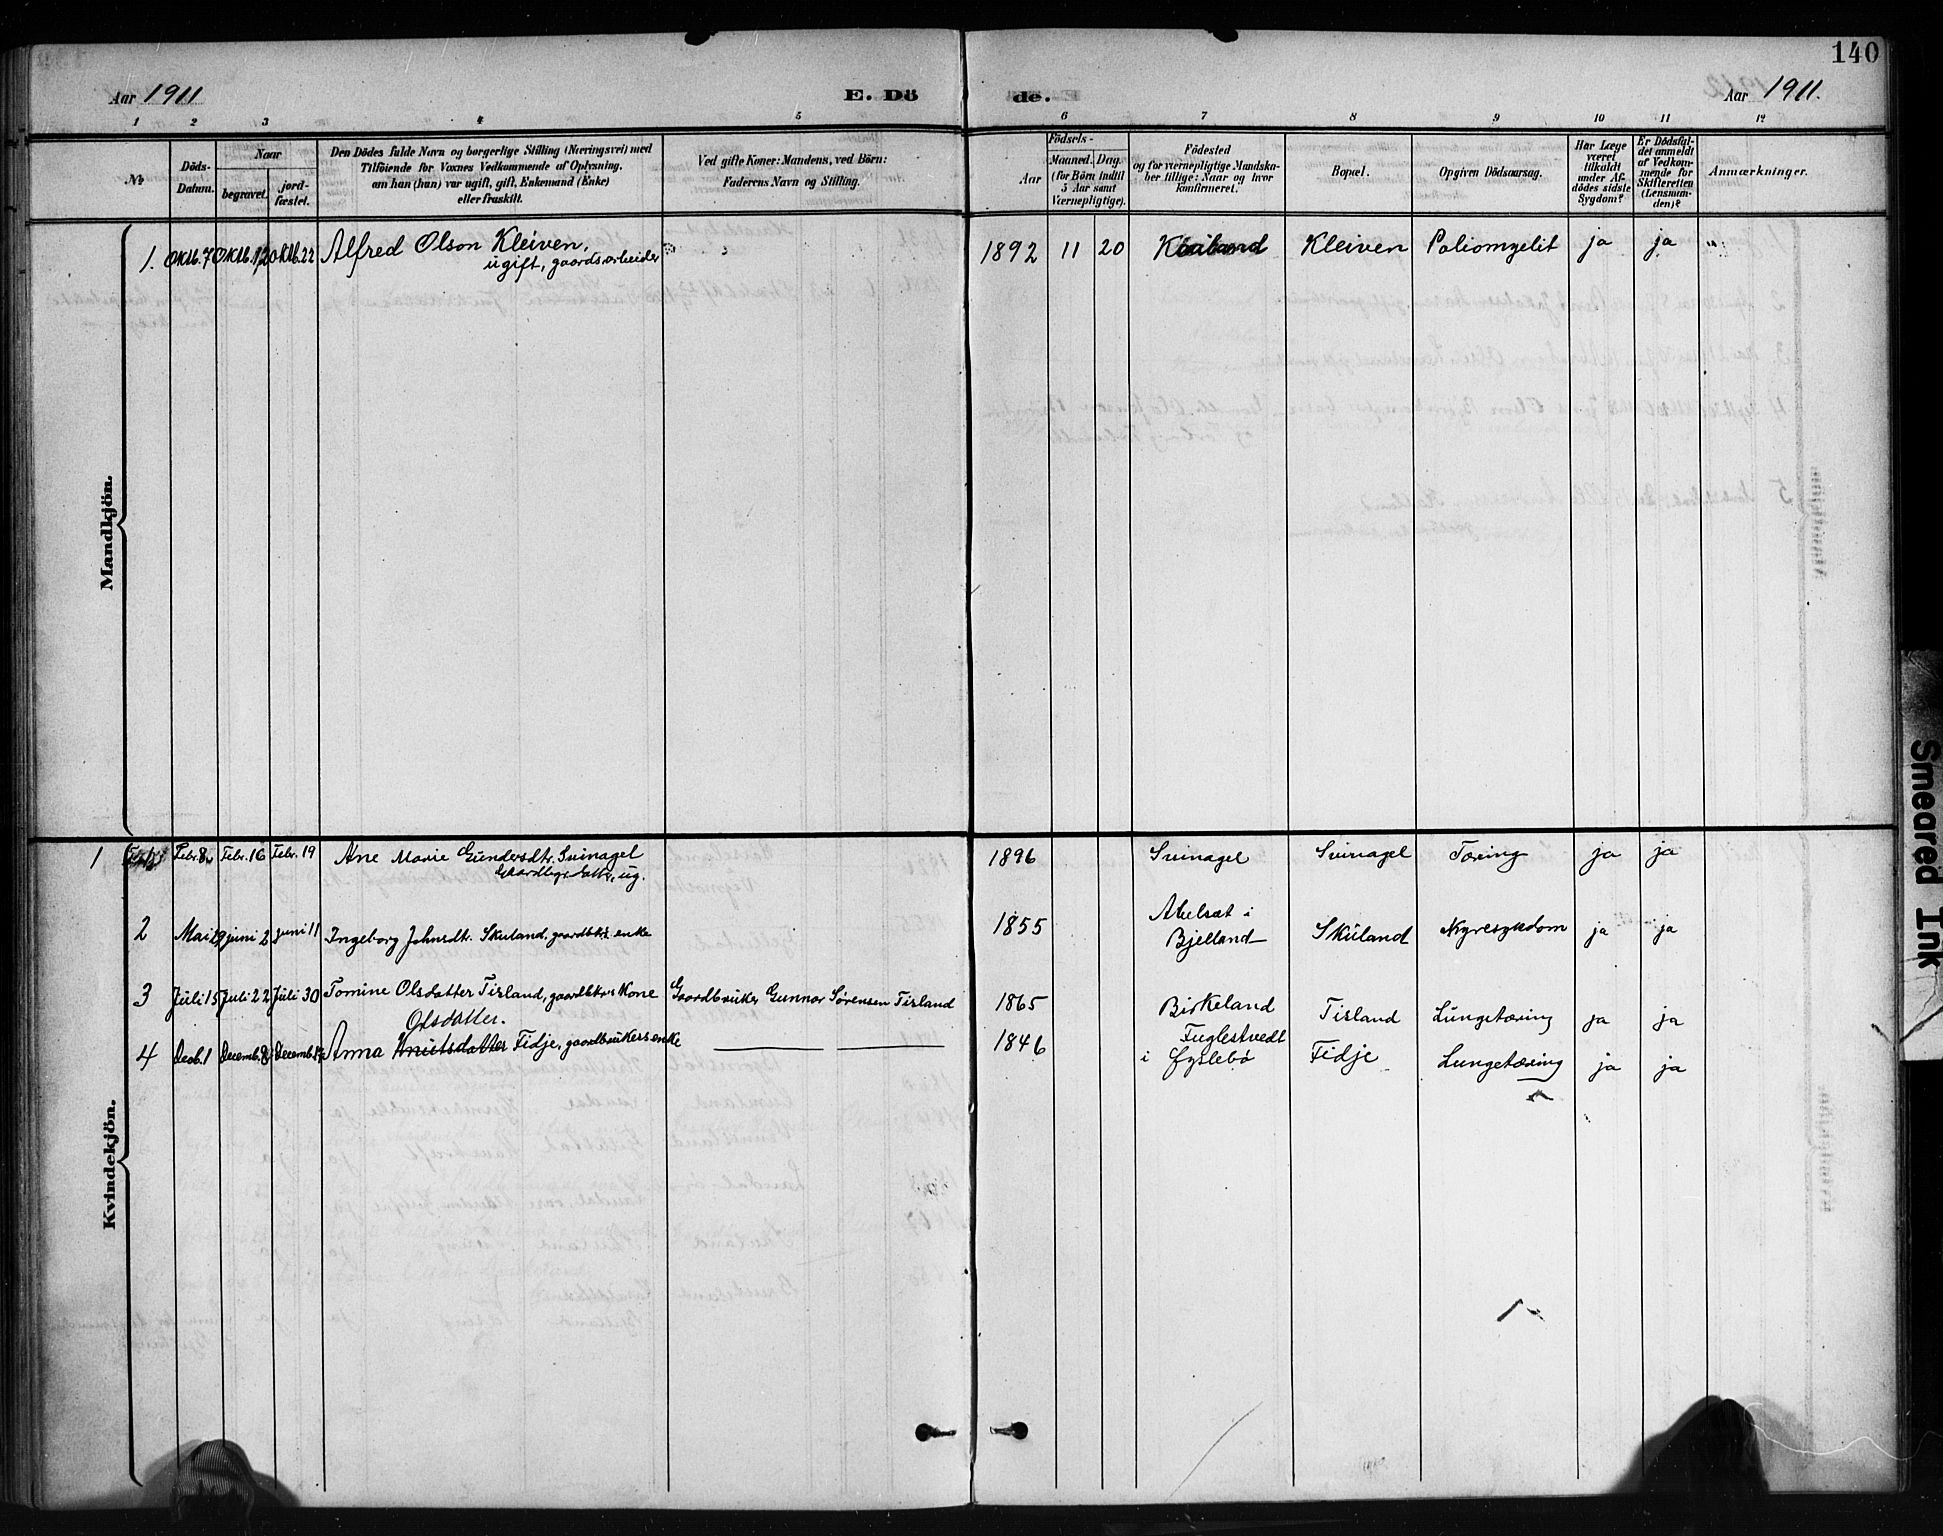 140
Aar 1911
E. Dö
de.
Aar 1911.
1 2 3 4 5 6 7 8 9 10 11 12
№
Döds-
Datum.
Naar
begravet.
jord-
fæstet.
Den Dödes fulde Navn og borgerlige Stilling (Næringsvei) med
Tilföiende for Voxnes Vedkommende af Oplysning,
om han (hun) var ugift, gift, Enkemand (Enke)
eller fraskilt.
Ved gifte Koner: Mandens, ved Börn:
Faderens Navn og Stilling.
Födsels-
Aar
Maaned.
Dag.
(for Börn indtil
5 Aar samt
Værnepligtige).
Födested
og for værnepligtige Mandska-
ber tillige: Naar og hvor
konfirmeret.
Bopæl.
Opgiven Dödsaarsag.
Har Læge
været
tilkaldt
under Af-
dödes sidste
Sygdom?
Er Dödsfal-
det anmeldt
af Vedkom-
mende for
Skifteretten
(Lensman-
den)?
Anmærkninger.
Mandkjön.
1. Oktb. 7 Oktb. 12 Oktb. 22 Alfred Olson Kleiven, 1892 11 20 Kleiven Poliomyelit ja ja
ugift, gaardsarbeider
Kvindekjön.
1 Febr. 8 Febr. 16 Febr. 19 Ane Marie Gundersdtr. Svinagel 1896 Svinagel Svinagel Tæring ja ja
ug.
2 Mai 29 juni 2 juni 11 Ingeborg Johnsdt. Skuland, gaardbkr. enke 1855 Abelsæt i
Bjelland Skuland Nyresykdom ja ja
3 Juli 15 Juli 22 Juli 30 Tomine Olsdatter Tisland, gaardbkrs kone Gaardbruker Gunnar Sørensen Tisland 1865 Birkeland Tisland Lungetæring ja ja
Olsdatter.
4 Decb. 1 Decemb. 8 Decemb. Anna Knutsdatter Fidje, gaardbrukersenke 1846 Fuglestvedt
i Øyslebø Fidje Lungetæring ja ja
Smeared Ink